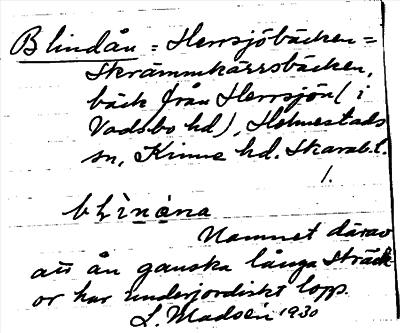 Blindån = Herrsjöbäcken =
Skrämmkärrsbäcken,
bäck från Herrsjön (i
Vadsbo hd), Holmestads
sn, Kinne hd. Skarab. l.
1.
blìnȯna
Namnet därav
att ån ganska långa sträck
or har underjordiskt lopp.
L. Madsén 1930